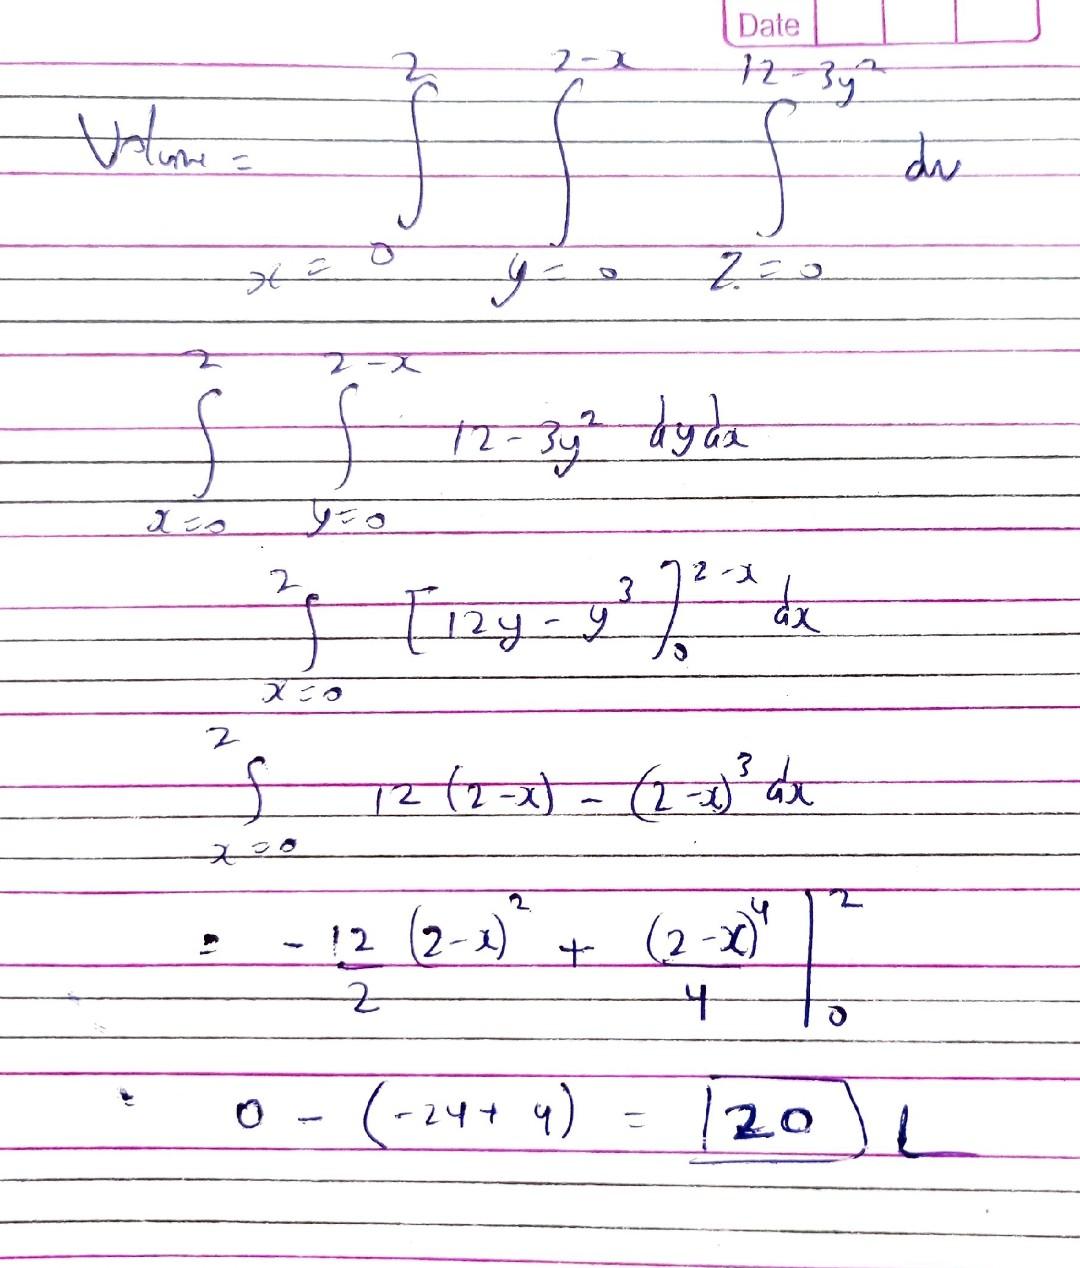 Date
Volume = ∫_{x=0}^{2} ∫_{y=0}^{2-x} ∫_{z=0}^{12-3y²} dv
∫_{x=0}^{2} ∫_{y=0}^{2-x} 12-3y² dy dx
∫_{x=0}^{2} [12y - y³]_{0}^{2-x} dx
∫_{x=0}^{2} 12(2-x) - (2-x)³ dx
= -12/2 (2-x)² + (2-x)⁴/4 |_{0}^{2}
: 0 - (-24+4) = 20